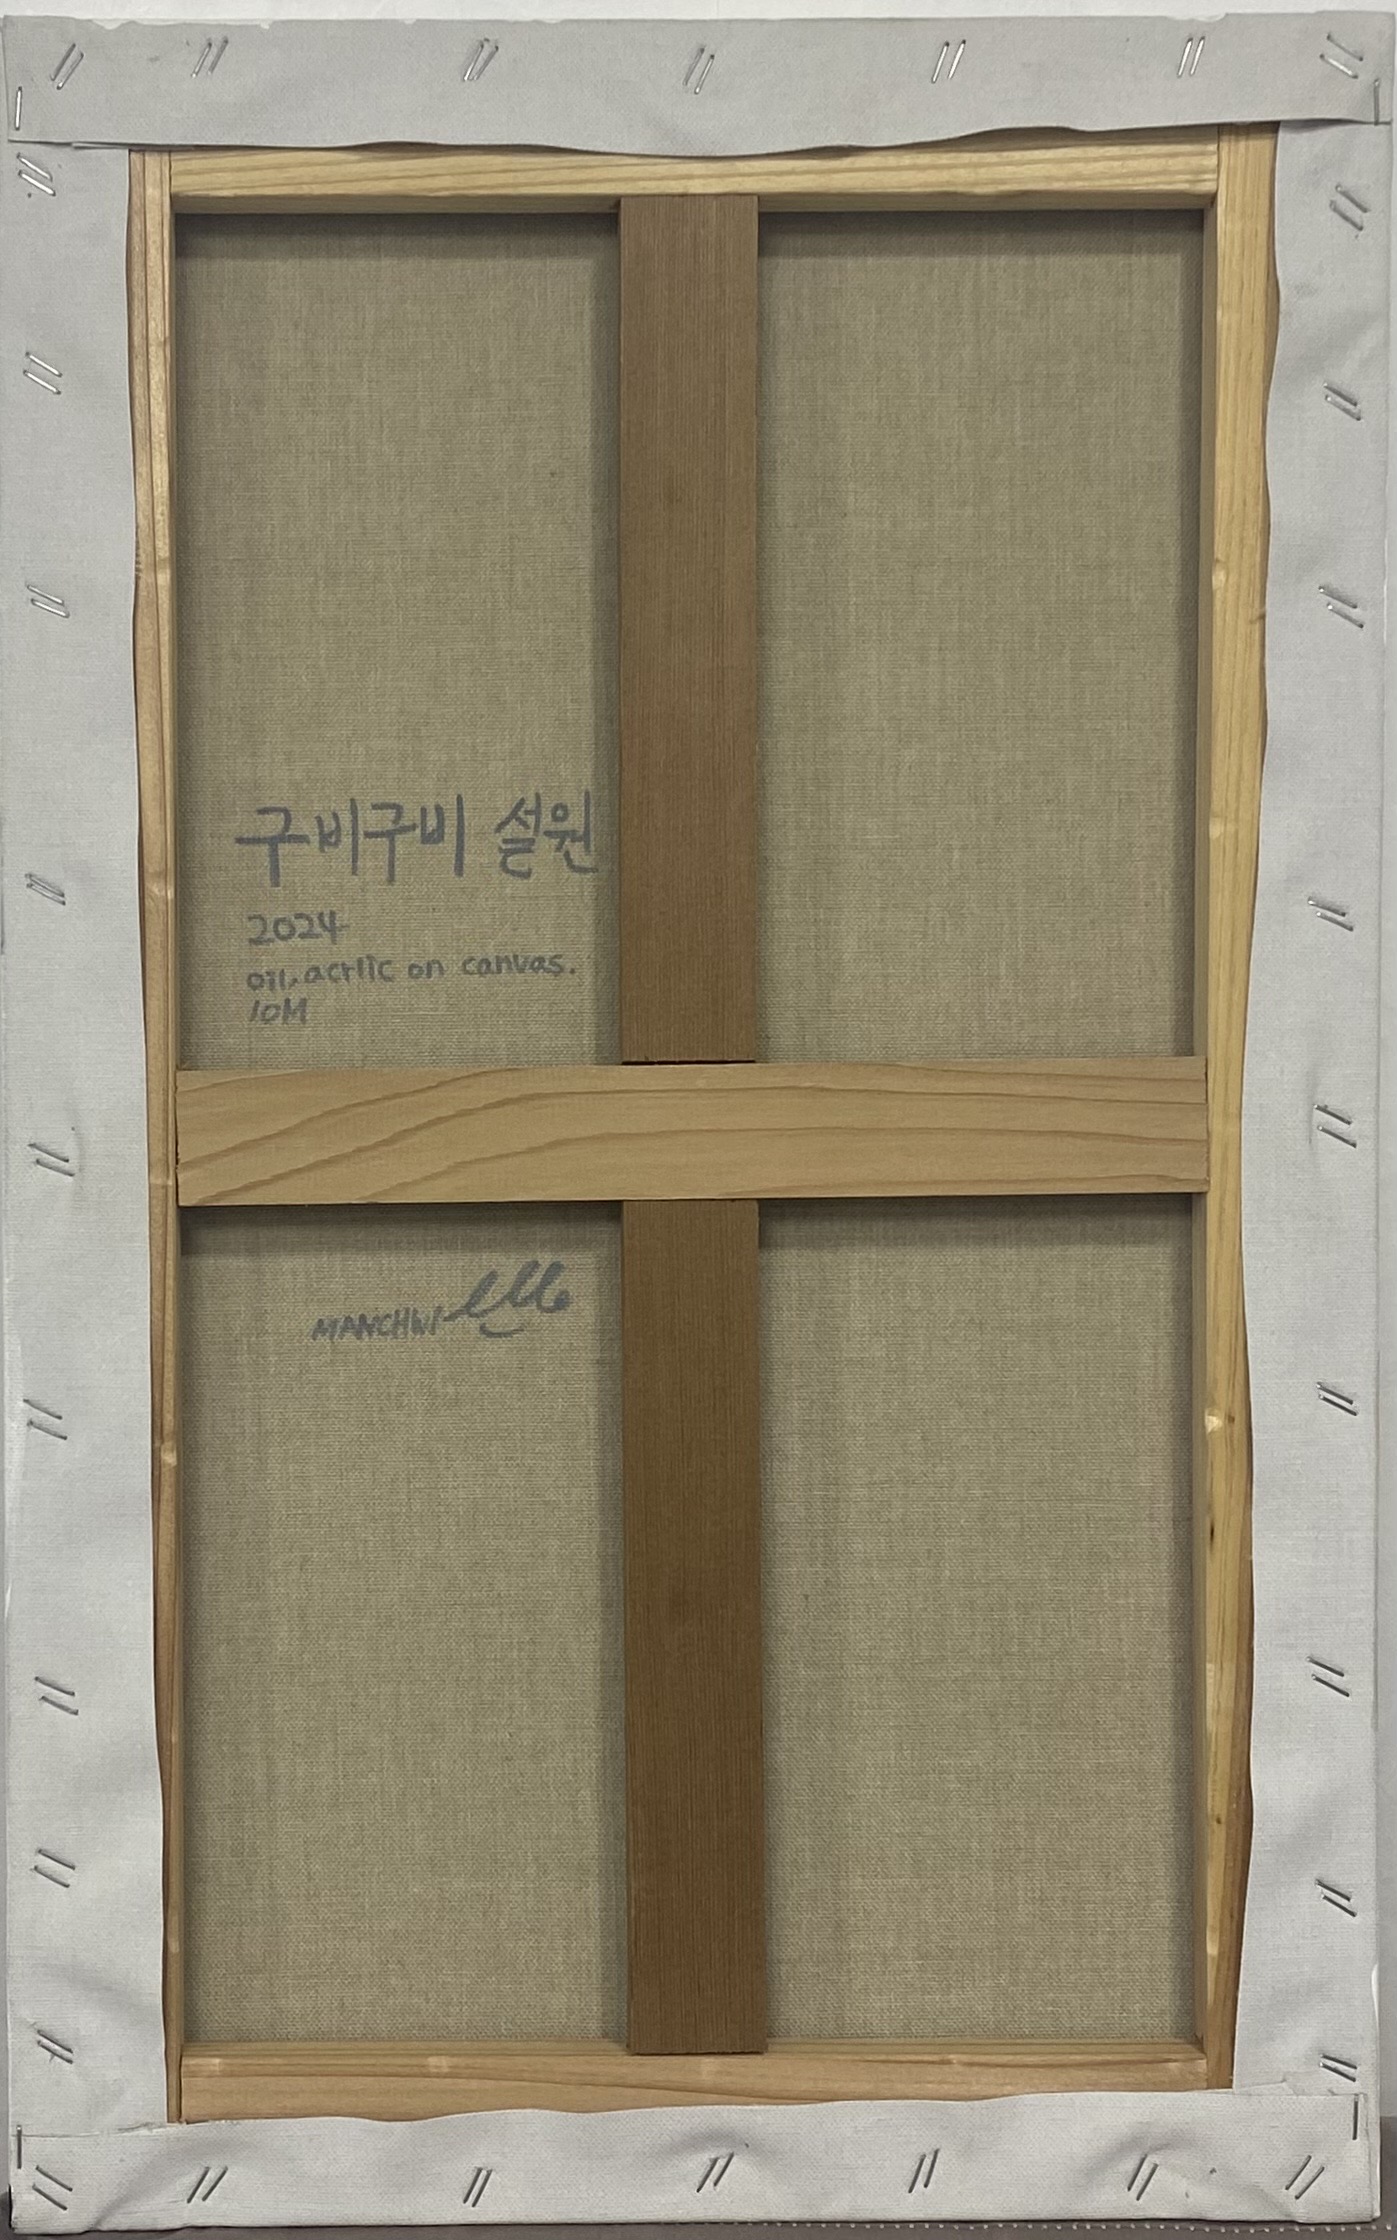 구비구비 설원
2024
oil, acrlic on canvas.
10M
MANCHWI